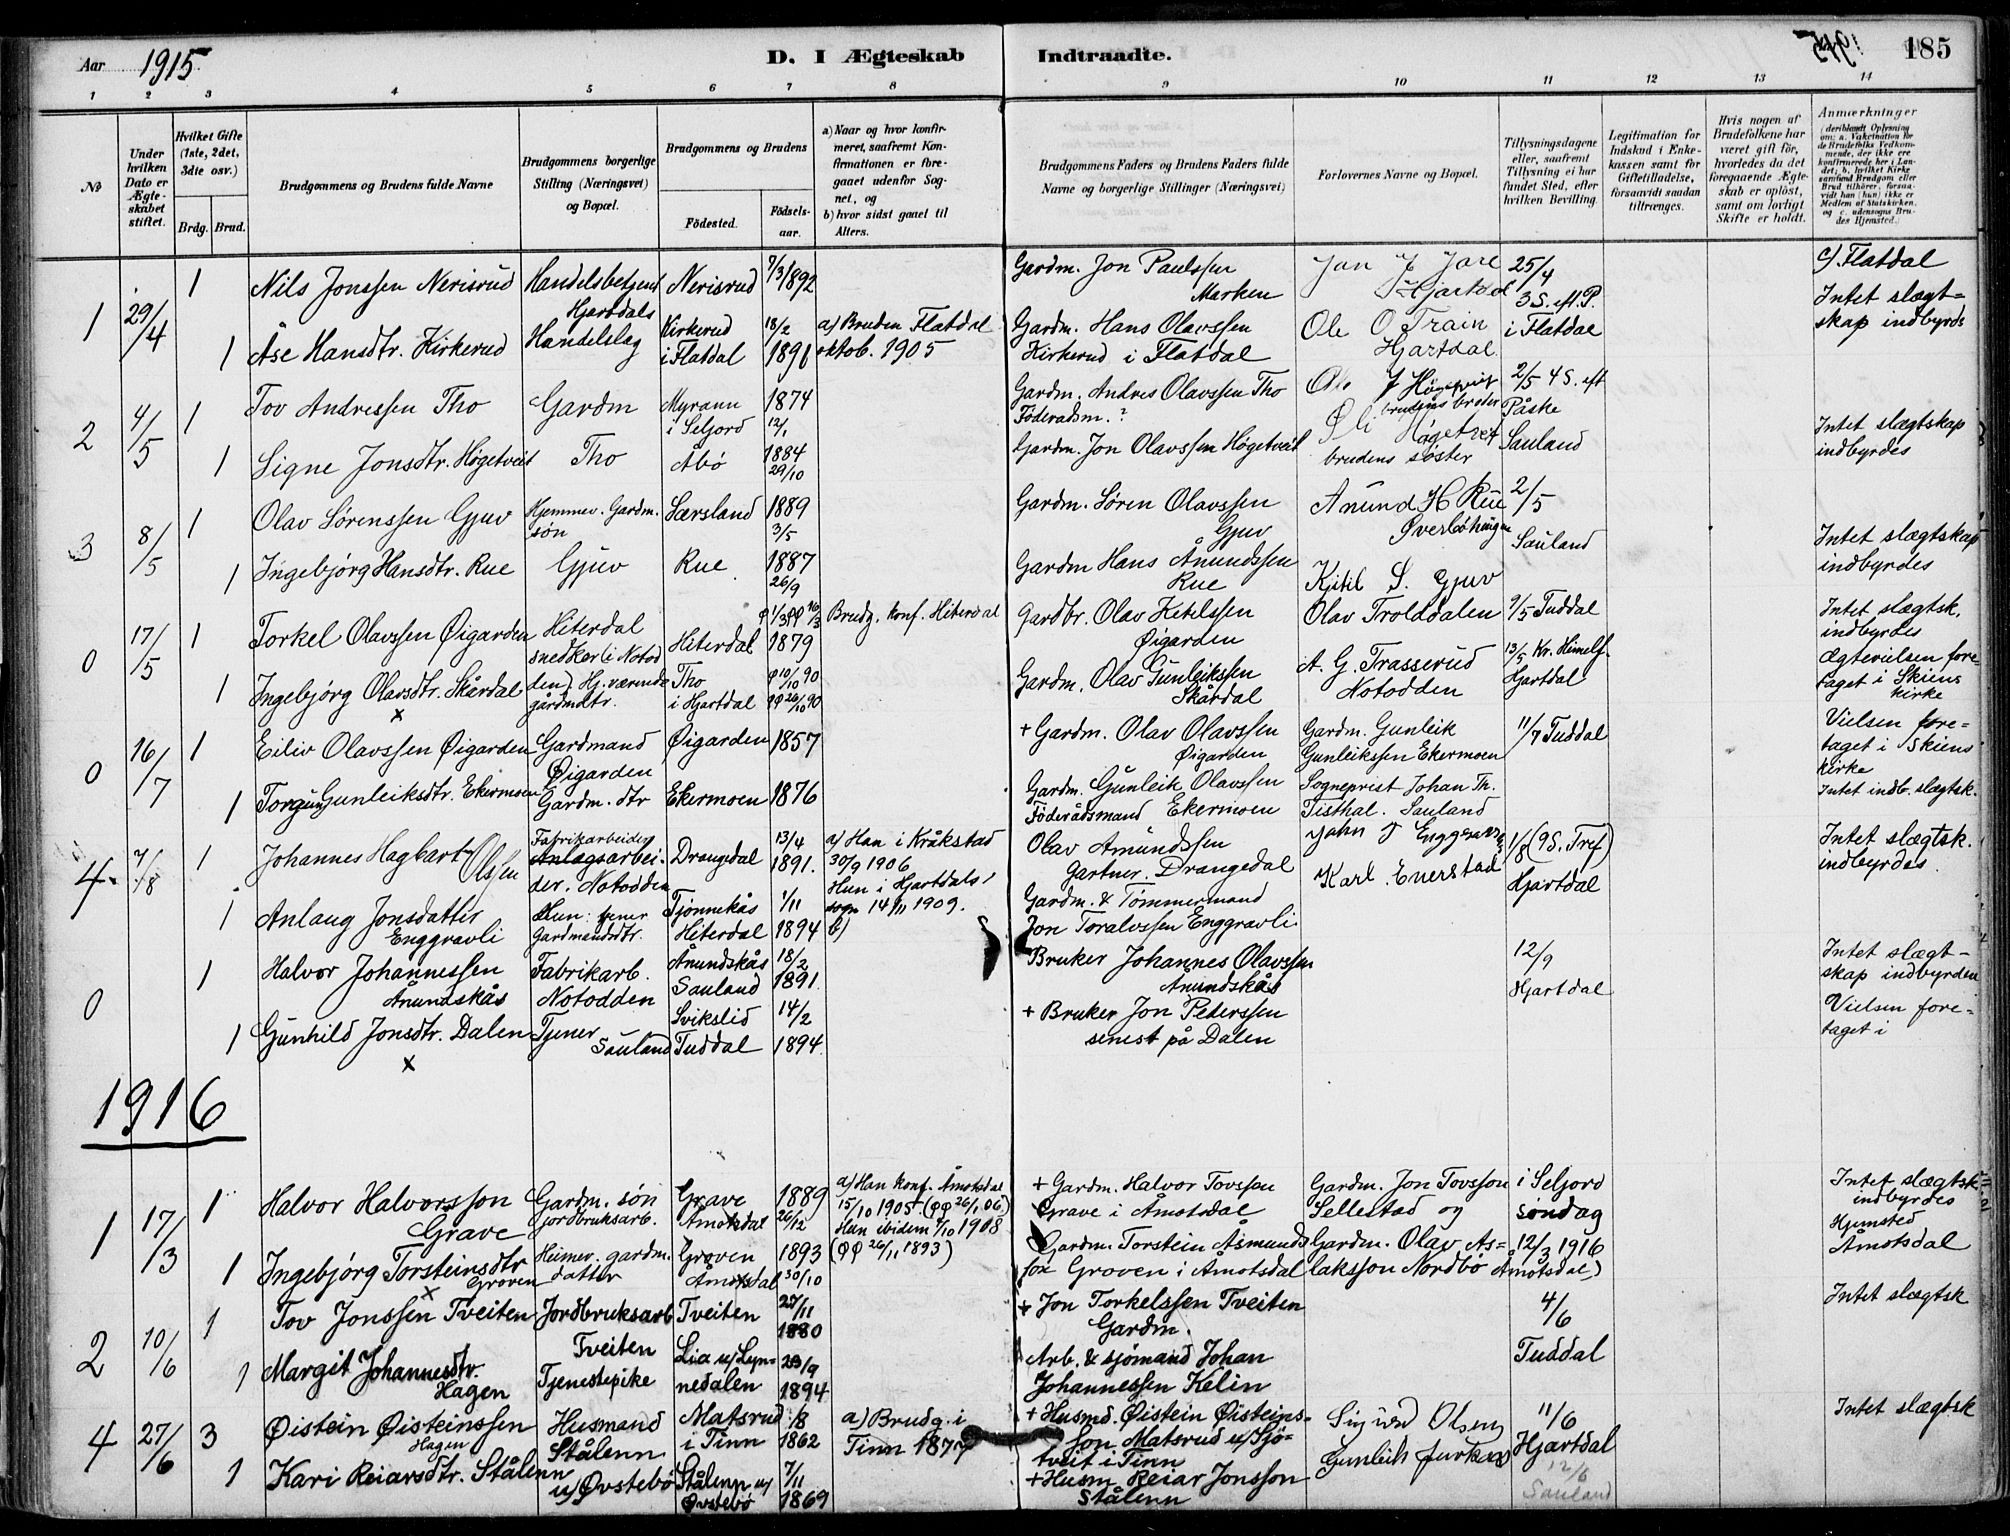 Aar 1915
D. I Ægteskab Indtraadte.
1915
185
1 2 3 4 5 6 7 8 9 10 11 12 13 14
No
Under hvilken Dato er Ægteskabet stiftet.
Hvilket Gifte (1ste, 2det, 3dte osv.)
Brdg. Brud.
Brudgommens og Brudens fulde Navne
Brudgommens borgerlige Stilling (Næringsvei) og Bopæl.
Brudgommens og Brudens
Födested.
Födsels-aar.
a) Naar og hvor konfirmeret, saafremt Konfirmationen er foregaaet udenfor Sognet, og
b) hvor sidst gaaet til Alters.
Brudgommens Faders og Brudens Faders fulde Navne og borgerlige Stillinger (Næringsvei)
Forlovernes Navne og Bopæl.
Tillysningsdagene eller, saafremt Tillysning ei har fundet Sted, efter hvilken Bevilling.
Legitimation for Indskud i Enkekassen samt for Giftetilladelse, forsaavidt saadan tiltrænges.
Hvis nogen af Brudefolkene har været gift för, hvorledes da det foregaaende Ægteskab er oplöst, samt om lovligt Skifte er holdt.
Anmærkninger
(deriblandt Oplysning om: a. Vakcination for de Brudefolks Vedkommende, der ikke ere konfirmerede her i Landet; b. hvilket Kirkesamfund Brudgom eller Brud tilhörer, forsaavidt han (hun) ikke er Medlem af Statskirken, og c. udensogns Brudes Hjemsted.)
1 29/4 1 Nils Jonssen Nerisrud Handelsbetjent Nerisrud 7/3 1892 Gardm. Jon Paulssen Marken Jon J Jore Hjartdal 25/4 3 S. eft. P. c) Flatdal
1 Åse Hansdtr. Kirkerud Hjartdals Handelslag Kirkerud i Flatdal 18/2 1891 a) Bruden Flatdal oktob. 1905 Gardm. Hans Olavssen Kirkerud i Flatdal Ole O Train Hjartdal i Flatdal Intet slægtskap indbyrds
2 4/5 1 Tov Andressen Tho Gardm Myrann i Seljord 1874 12/1 Gardm. Andres Olavssen Tho Föderadsm.? Ole J Høgetveit brudens broder 2/5 4 S. eft Påske
1 Signe Jonsdtr. Høgetveit Tho Åbö 1884 29/10 Gardm. Jon Olavssen Högetveit Høgetveit brudens søster Sauland Intet slægtskap indbyrdes
3 8/5 1 Olav Sørenssen Gjuv Hjemmev. Gardm. søn Særsland 1889 3/5 Gardm. Søren Olavssen Gjuv Anund H Rue Øverbøhaugen 2/5
1 Ingebjørg Hansdtr. Rue Gjuv Rue 1887 26/9 Gardm Hans Ånundssen Rue Kjitil S. Gjuv Sauland Intet slægtskap indbyrdes
0 17/5 1 Torkel Olavssen Øigarden Hiterdal snedker (i Notodden) Hiterdal 1879 Brudg. konf. Hiterdal Gardbr. Olav Ketelssen Øigarden Olav Trolddalen 9/5 Tuddal Intet slægtsk. indbyrdes
1 Ingebjörg Olavsdtr. Skårdal Hj. værende gårdmdtr. Tho i Hjartdal Gardm. Olav Gunleikssen Skårdal A. G. Trasserud Notodden 13/5 Kr. Himelf. Hjartdal Ægtevielsen foretaget i Skiens kirke
0 16/7 1 Eiliv Olavssen Øigarden Gardmand Øigarden Øigarden 1857 + Gardm. Olav Olavssen Øigarden Gardm. Gunleik Gunleikssen Ekermoen 11/7 Tuddal Vielsen foretaget i Skiens kirke
1 Torgun Gunleiksdtr. Ekermoen Gardm. dtr Ekermoen 1876 Gardm. Gunleik Olavssen Föderådsmand Ekermoen Sogneprest Johan Th. Tisthal. Sauland Intet indb. slægtsk.
4. 7/8 1 Johannes Hagbart Olssen Fabrikarbeider Anlægsarbeider. Notodden Drangedal 13/4 1891. a) Han i Kråkstad 30/9 1906 Olav Amundssen Gartner. Drangedal John J Enggrav 1/8 (9 S. Tref) Intet slægtsk. indbyrdes.
1 Anlaug Jonsdatter Enggravli Hun: tjener Gardmandsdtr. Tjönnekås Hiterdal 1/11 1894 Hun i Hjartdals sogn 14/11 1909. b) Gardm. & Tömmermand Jon Toralvssen Enggravli Karl Enerstad Hjartdal
0 1 Halvor Johannessen Ånundskås Fabrikarb. Notodden Ånundskås Sauland 18/2 1891 Bruker Johannes Olavssen Ånundskås 12/9 Hjartdal Intet slægtskap indbyrden
1 Gunhild Jonsdtr. Dalen Tjener Sauland Svikslid Tuddal 14/2 1894. + Bruker Jon Pederssen senest på Dalen Vielsen foretaget i
1916
1 17/3 1 Halvor Halvorsson Grave Gardm. søn jordbruksarb. Grave Åmotsdal 1889 26/12 a) Han konf. Åmotsdal 15/10 1905. + Gardm. Halvor Tovsson Grave i Åmotsdal Gardm. Jon Tovsson Sellestad og i Seljord søndag Intet slægtsk. indbyrdes
1 Ingebjörg Torsteinsdtr Groven Heimev. gardm. datter Groven Åmotsdal 1893 30/10 Hun ibidem 4/10 1908 Gardm. Torstein Åsmundsson Groven i Åmotsdal Gardm. Olav Aslaksson Nordbö 12/3 1916 Åmotsdal) Hjemsted Åmotsdal
2 10/6 1 Tov Jonssen Tveiten Jordbruksarb Tveiten Tveiten 27/11 1880 + Jon Torkelssen Tveiten Gardm. 4/6 Intet slægtsk
1 Margit Johannesdtr. Hagen Tjenestepike Lia u/ Lynnedalen 23/9 1894 Arb. & sjömand Johan Johannessen Kelin Tuddal
4 27/6 3 Øistein Øisteinssen Hagen Husmand Stålenn Matsrud i Tinn 1/8 1862 a) Brudg. i Tinn 1877 + Husmd. Øistein Øisteinsson Matsrud u/ Sjötveit i Tinn Sigurd Olsen 11/6 Hjartdal Intet slægtsk
1 Kari Reiarsdtr. Stålenn u/ Øvstebö Stålenn u/ Øvstebö 7/11 1869 + Husm Reiar Jonsson Stålenn Gunleik 12/6 Sauland